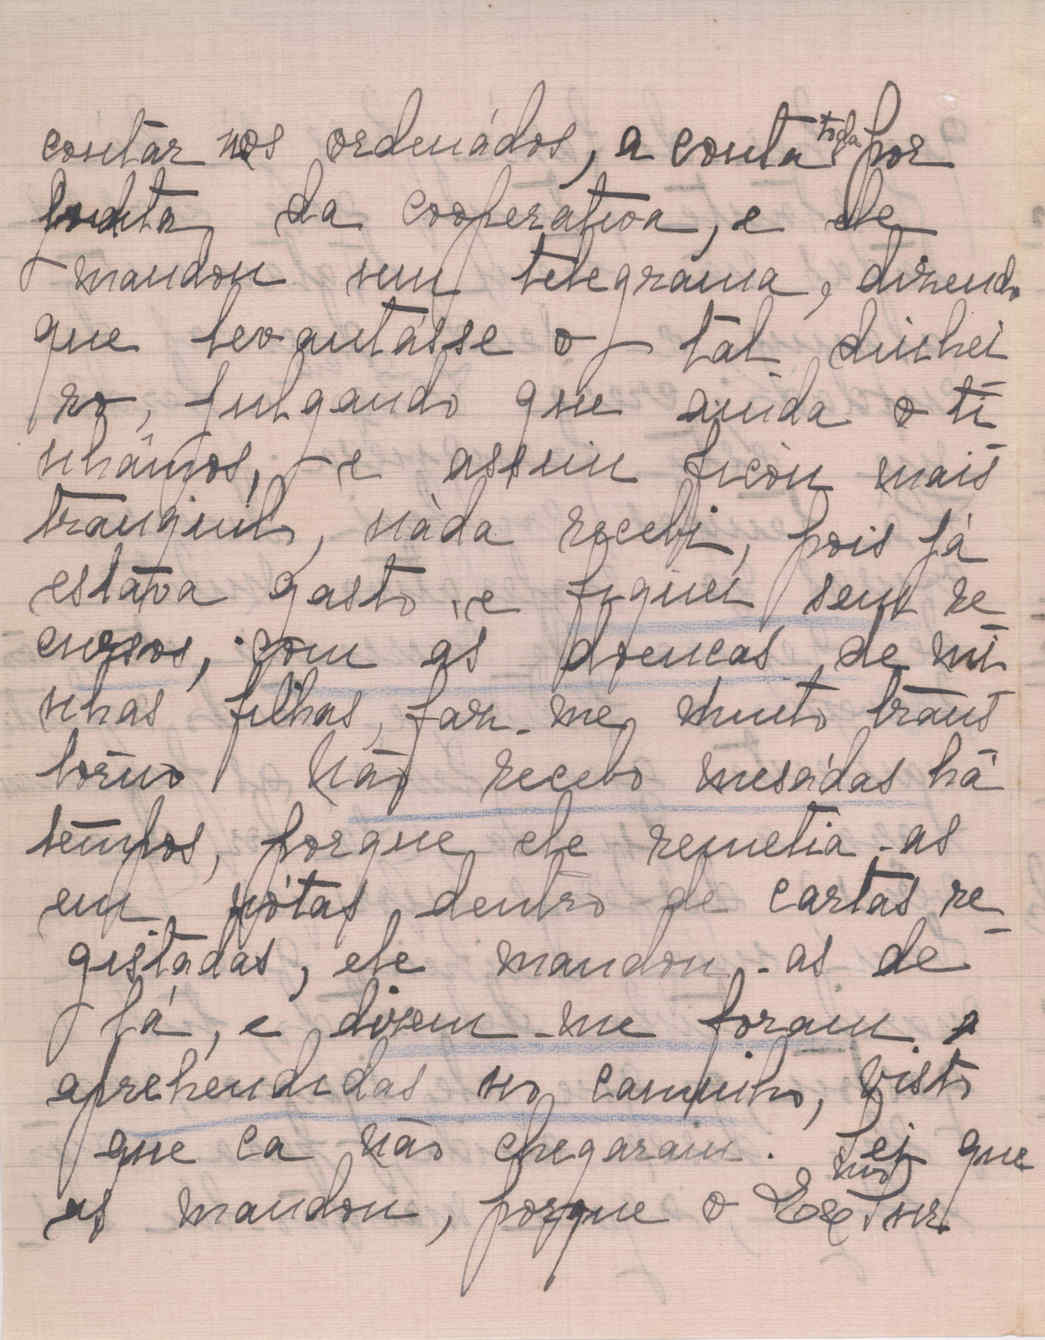 contar nos ordenádos, a conta toda por
junta da cooperativa, e ele
mandou um telegrama, dizendo
que levantásse o tal dinhei
ro, julgando que ainda o ti
nhâmos, e assim ficou mais
tranquilo, náda recebi, pois já
estáva gasto, e fiquei sem re
cursos, com as doencas de mi
nhas filhas, faz-me muito trans
torno. Não recebo mesádas há
tempos, porque ele remetia-as
em nótas, dentro de cartas re
gistádas, ele mandou-as de
lá, e dizem-me foram
aprehendidas no caminho, visto
que ca não chegaram. Sei que
as mandou, porque o Exmo Snr.